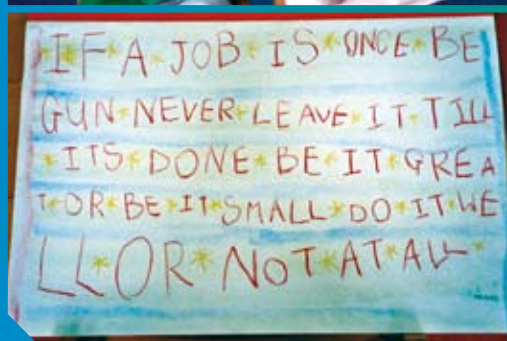 IF*A*JOB*IS*ONCE*BE
GUN*NEVER*LEAVE*IT*TILL
*ITS*DONE*BE*IT*GREA
T*OR*BE*IT*SMALL*DO*IT*WE
LL*OR*NOT*AT*ALL*